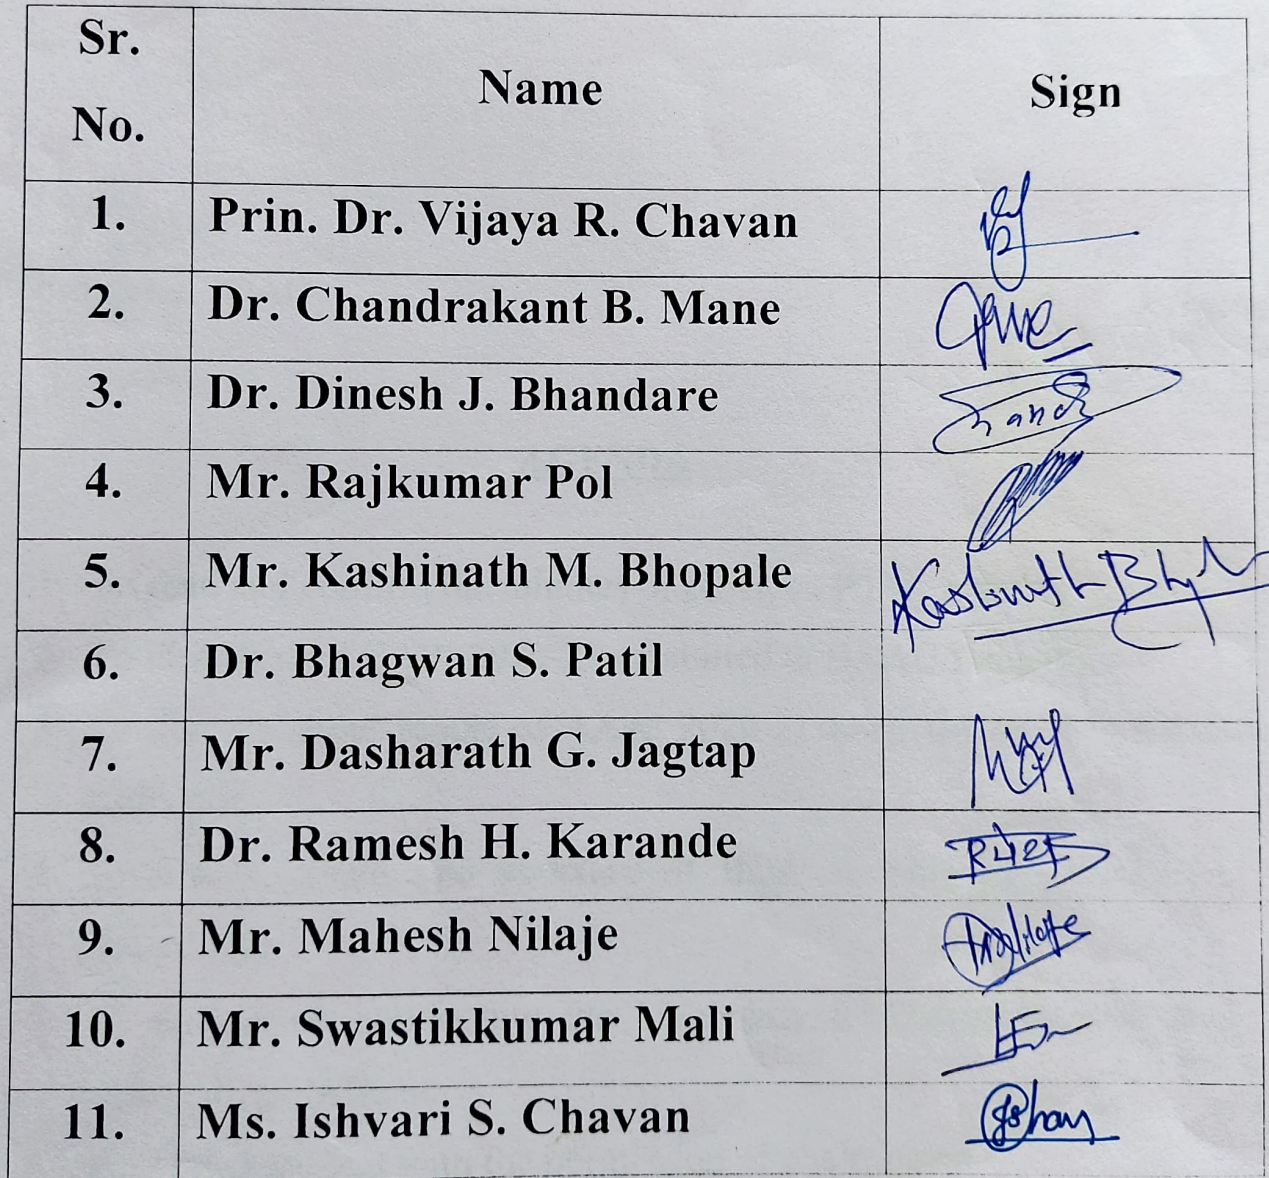 Sr. No. Name Sign
1. Prin. Dr. Vijaya R. Chavan
2. Dr. Chandrakant B. Mane
3. Dr. Dinesh J. Bhandare
4. Mr. Rajkumar Pol
5. Mr. Kashinath M. Bhopale
6. Dr. Bhagwan S. Patil
7. Mr. Dasharath G. Jagtap
8. Dr. Ramesh H. Karande
9. Mr. Mahesh Nilaje
10. Mr. Swastikkumar Mali
11. Ms. Ishvari S. Chavan